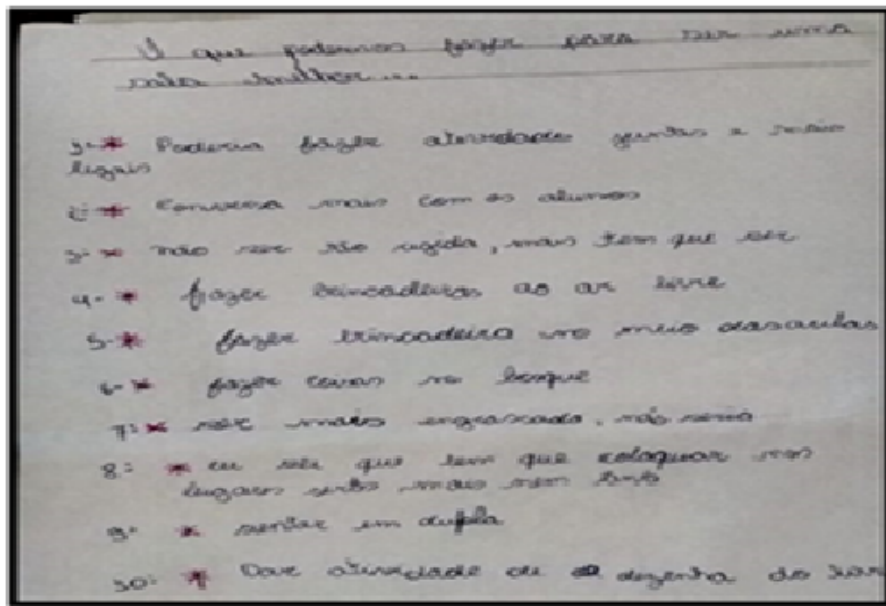 O que poderemos fazer para ser uma
melhor...
1-* Poderia fazer atividades juntas e mais
legais
2-* Conversa mais com os alunos
3-* não ser tão rigida, mais tem que ser
4-* fazer brincadeiras ao ar livre
5-* fazer brincadeira no meio das aulas
6-* fazer coisas no bosque
7-* ser mais engrascado, não seria
8- * eu sei que tem que colaquar nos
lugares mais nem
9- * sentar em dupla
10- * Dar atividade de dezenha do